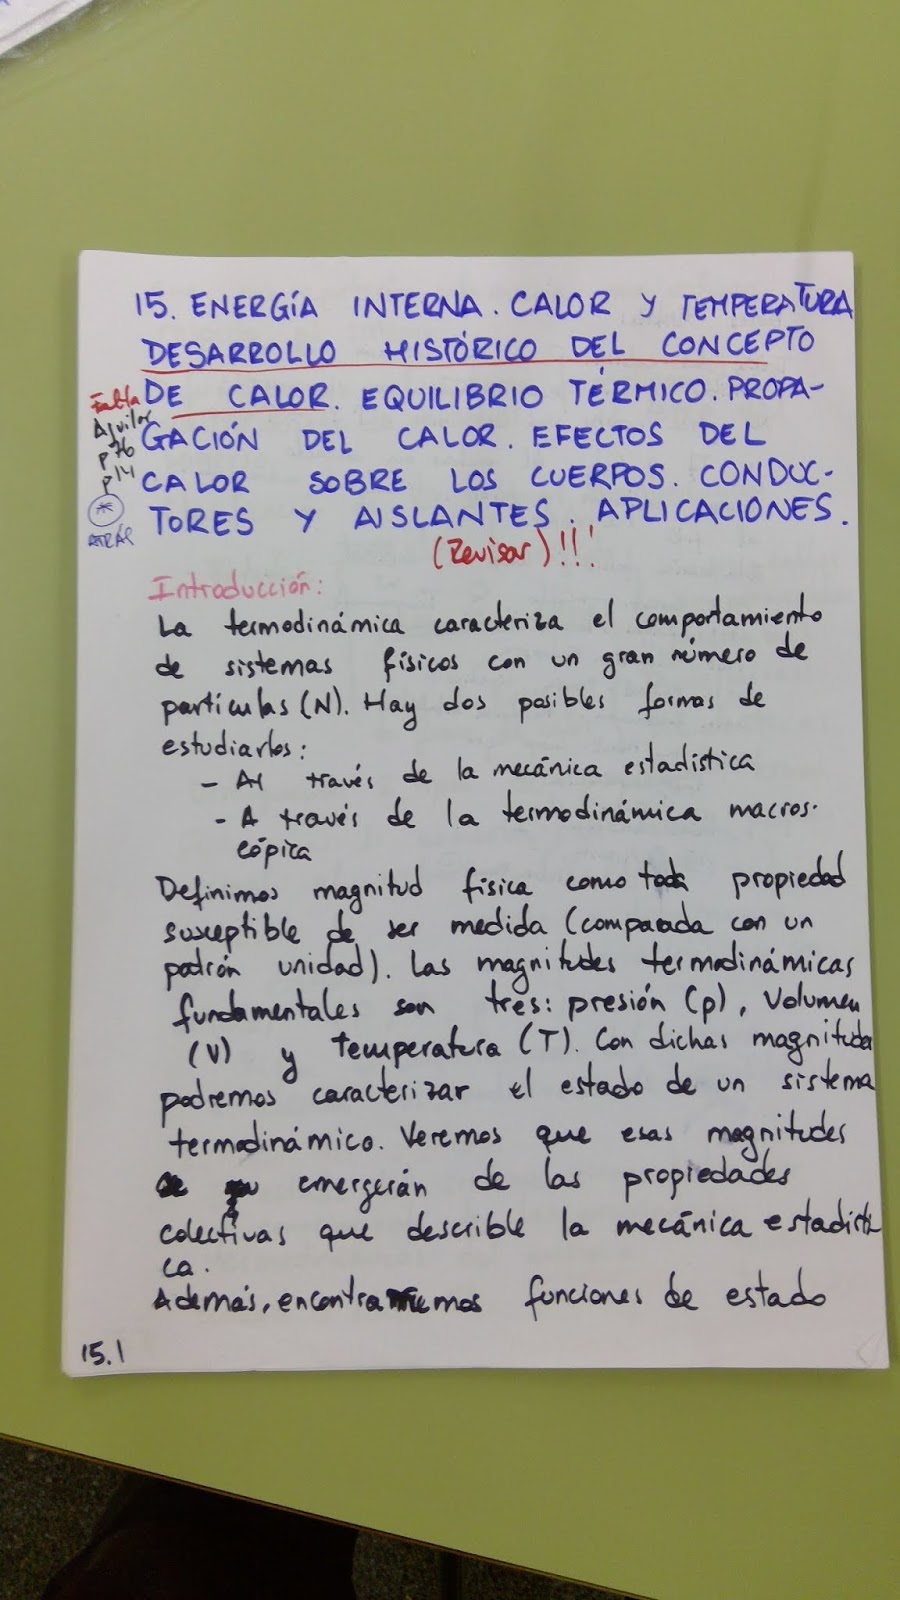 15. ENERGÍA INTERNA. CALOR Y TEMPERATURA
DESARROLLO HISTÓRICO DEL CONCEPTO
DE CALOR. EQUILIBRIO TÉRMICO. PROPA-
GACIÓN DEL CALOR. EFECTOS DEL
CALOR SOBRE LOS CUERPOS. CONDUC-
TORES Y AISLANTES. APLICACIONES.
Falta
Aguilar
p 76
p 14
*
ATRÁS
(Revisar)!!!
Introducción:
La termodinámica caracteriza el comportamiento
de sistemas físicos con un gran número de
partículas (N). Hay dos posibles formas de
estudiarlos:
- A través de la mecánica estadística
- A través de la termodinámica macros-
cópica
Definimos magnitud física como toda propiedad
susceptible de ser medida (comparada con un
patrón unidad). Las magnitudes termodinámicas
fundamentales son tres: presión (p), Volumen
(V) y temperatura (T). Con dichas magnitudes
podremos caracterizar el estado de un sistema
termodinámico. Veremos que esas magnitudes
emergerán de las propiedades
colectivas que describle la mecánica estadísti
ca.
Además, encontraremos funciones de estado
15.1